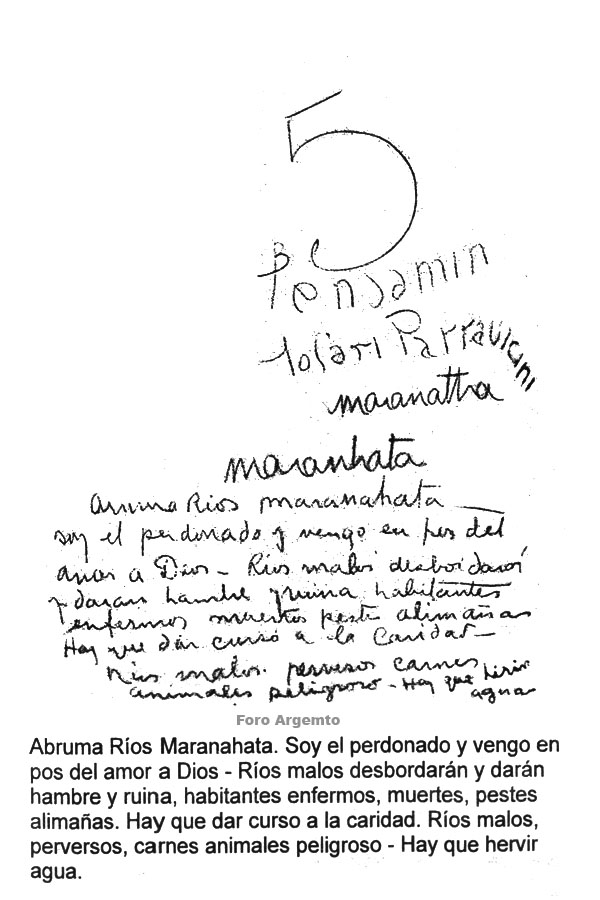 5
Benjamin
Solari Parravicini
maranattha
maranhata
Arruma Rios maranahata
soy el perdonado y vengo en pos del
amor a Dios - Rios malos desbordarán
y daran hambre y ruina habitantes
enfermos muertos peste alimañas
Hay que dar curso a la Caridad -
Rios malos. perversos carnes
animales peligroso - Hay que hervir
agua
Foro Argemto
Abruma Ríos Maranahata. Soy el perdonado y vengo en
pos del amor a Dios - Ríos malos desbordarán y darán
hambre y ruina, habitantes enfermos, muertes, pestes
alimañas. Hay que dar curso a la caridad. Ríos malos,
perversos, carnes animales peligroso - Hay que hervir
agua.